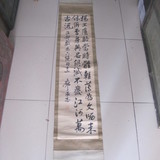 楊王盧駱當時體輕薄為文哂未
休爾曹身與名俱滅不廢江河萬
古流